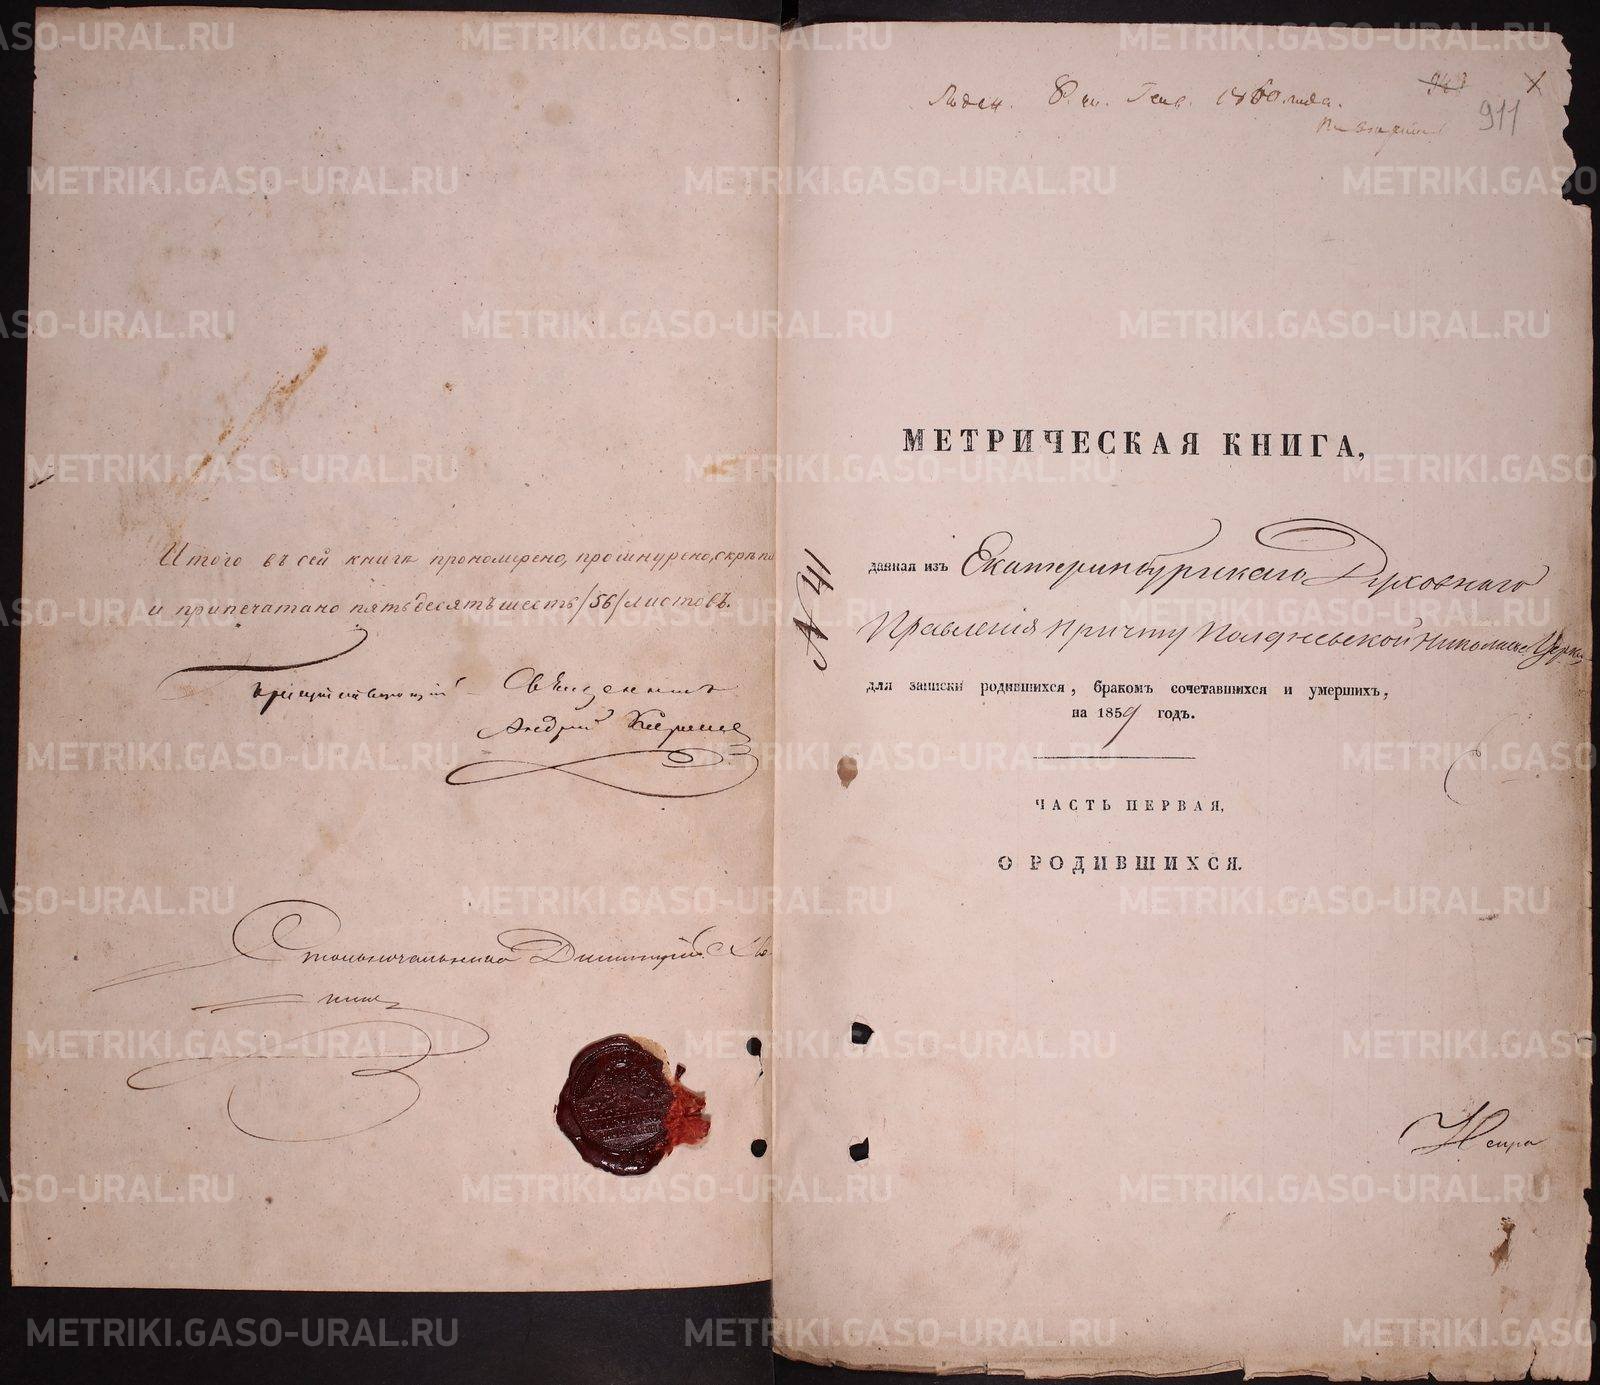 Итого въ сей книгѣ прономѣрено, прошнурено, скрѣпле
и припечатано пятьдесятъ шесть /56/ листовъ.
Присутствующій Священникъ
Андрей
Столоначальникъ Димитрій
8. Генв. 1860 года.
911
МЕТРИЧЕСКАЯ КНИГА,
№ 41
данная изъ Екатеринбургскаго Духовнаго
Правленія причту Полдневской Николаев Церкви
для записки родившихся, бракомъ сочетавшихся и умершихъ,
на 1859 годъ.
ЧАСТЬ ПЕРВАЯ,
О РОДИВШИХСЯ.
METRIKI.GASO-URAL.RU